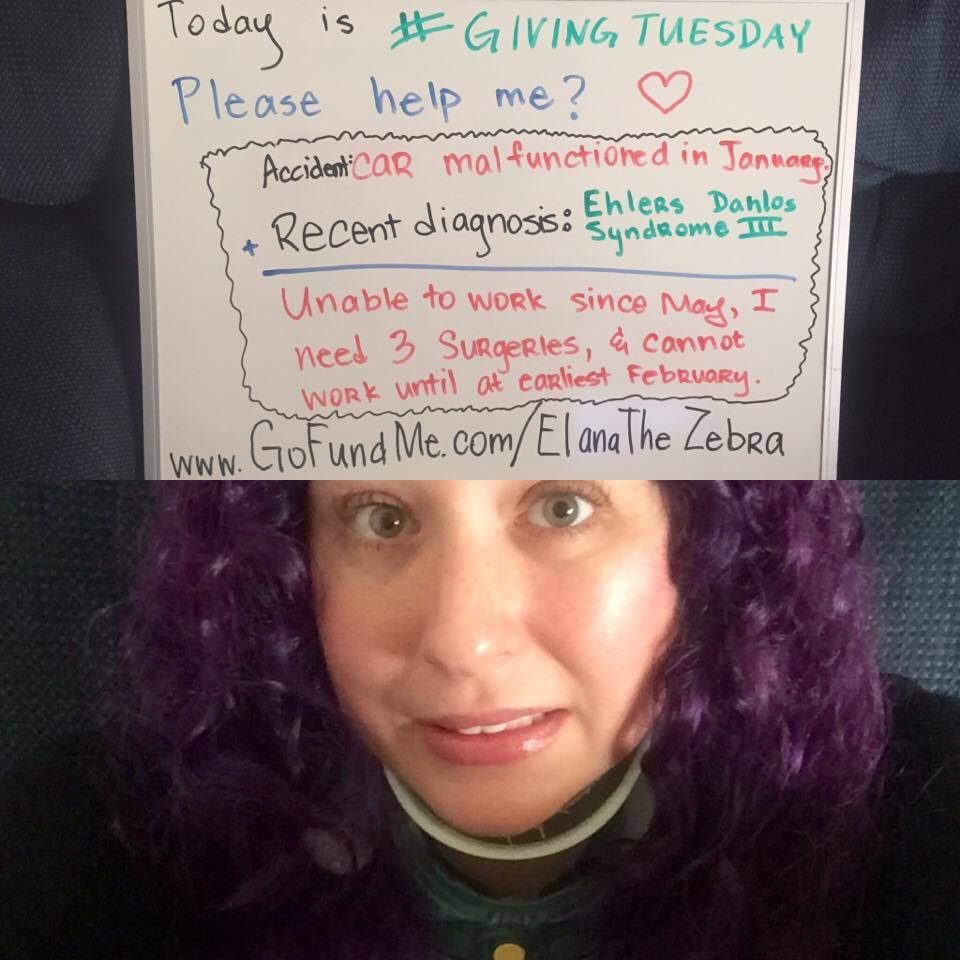 Today is #GIVING TUESDAY
Please help me? ♡
Accident: CAR malfunctioned in January.
+ Recent diagnosis: Ehlers Danlos
Syndrome III
Unable to work since May, I
need 3 Surgeries, & cannot
work until at earliest February.
www.GoFundMe.com/ElanaTheZebra